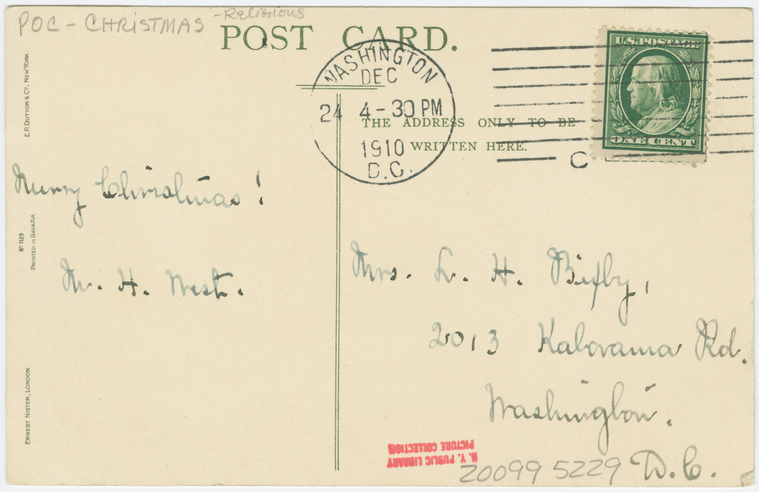 POC - CHRISTMAS - Religious
POST CARD.
WASHINGTON
DEC
24 4-30 PM
1910
D.C.
U.S. POSTAGE
ONE CENT
C
THE ADDRESS ONLY TO BE
WRITTEN HERE.
E.P. DUTTON & CO. NEW YORK.
Nº 1125
PRINTED IN BAVARIA.
ERNEST NISTER, LONDON.
Merry Christmas!
M. H. West.
Mrs. L. H. Bixby,
2013 Kalorama Rd.
Washington.
D.C.
N. Y. PUBLIC LIBRARY
PICTURE COLLECTION
20099 5229